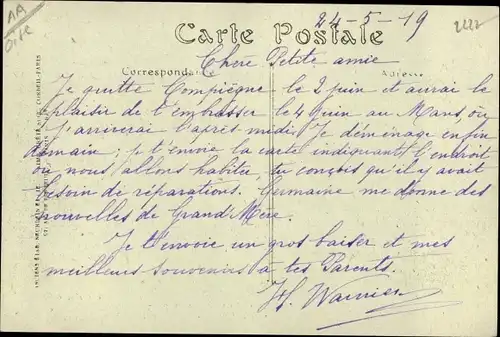 24-5-19
2222
AA
Oise
Carte Postale
Chère Petite amie
Correspondance
Adresse
Je quitte Compiègne le 2 juin et aurai le
plaisir de t'embrasser le 4 juin au Mans, où
j'arriverai l'après-midi. Je déménage enfin
demain ; je t'envoie la carte indiquant l'endroit
où nous allons habiter, tu conçois qu'il y avait
besoin de réparations. Germaine me donne des
nouvelles de Grand'Mère.
Je t'envoie un gros baiser et mes
meilleurs souvenirs à tes Parents.
H. Warnier